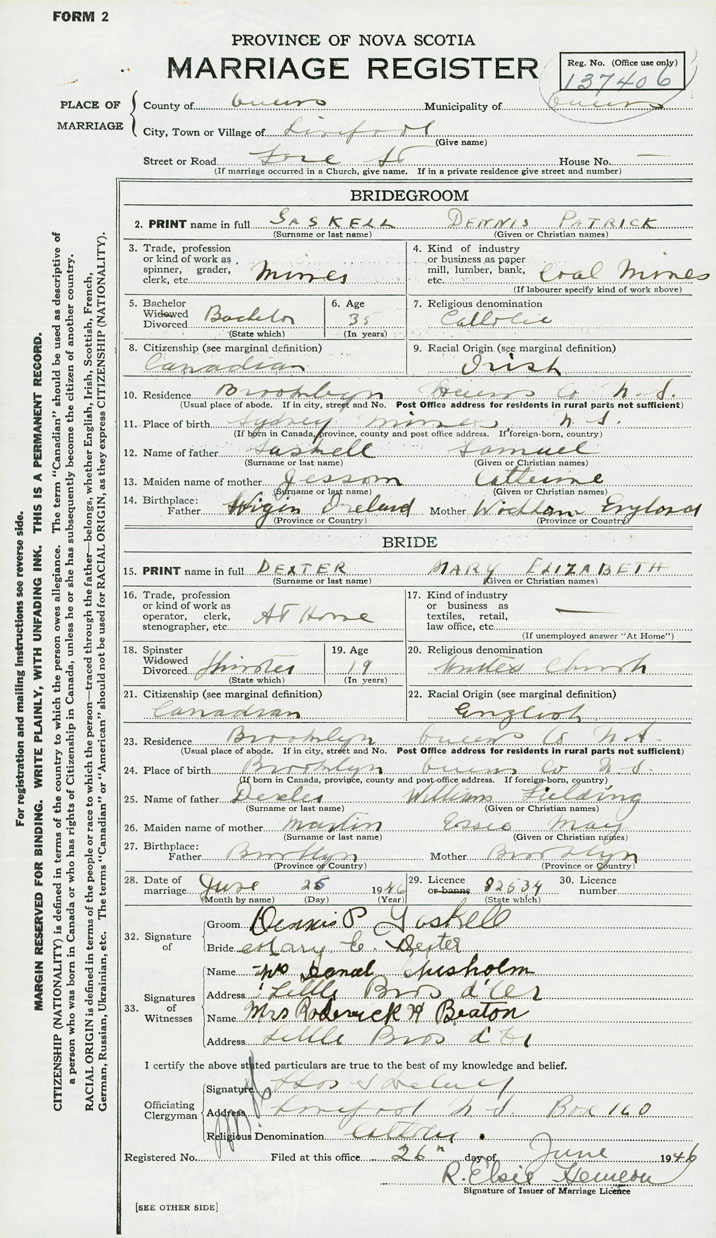 FORM 2
PROVINCE OF NOVA SCOTIA
MARRIAGE REGISTER
Reg. No. (Office use only)
137406
PLACE OF MARRIAGE
County of Queens Municipality of Queens
City, Town or Village of Liverpool
(Give name)
Street or Road House No. —
(If marriage occurred in a Church, give name. If in a private residence give street and number)
BRIDEGROOM
2. PRINT name in full GASKELL DENNIS PATRICK
(Surname or last name) (Given or Christian names)
3. Trade, profession or kind of work as spinner, grader, clerk, etc. Mines
4. Kind of industry or business as paper mill, lumber, bank, etc. Coal Mines
(If labourer specify kind of work above)
5. Bachelor Widowed Divorced Bachelor
(State which)
6. Age 35
(In years)
7. Religious denomination Catholic
8. Citizenship (see marginal definition) Canadian
9. Racial Origin (see marginal definition) Irish
10. Residence Brooklyn Queens Co N.S.
(Usual place of abode. If in city, street and No. Post Office address for residents in rural parts not sufficient)
11. Place of birth Sydney Mines, N.S.
(If born in Canada, province, county and post office address. If foreign-born, country)
12. Name of father Gaskell Samuel
(Surname or last name) (Given or Christian names)
13. Maiden name of mother Jessom Catherine
(Surname or last name) (Given or Christian names)
14. Birthplace: Father Wigin Ireland Mother England
(Province or Country) (Province or Country)
BRIDE
15. PRINT name in full DEXTER MARY ELIZABETH
(Surname or last name) (Given or Christian names)
16. Trade, profession or kind of work as operator, clerk, stenographer, etc. At Home
17. Kind of industry or business as textiles, retail, law office, etc. —
(If unemployed answer "At Home")
18. Spinster Widowed Divorced Spinster
(State which)
19. Age 19
(In years)
20. Religious denomination United Church
21. Citizenship (see marginal definition) Canadian
22. Racial Origin (see marginal definition) English
23. Residence Brooklyn Queens Co N.S.
(Usual place of abode. If in city, street and No. Post Office address for residents in rural parts not sufficient)
24. Place of birth Brooklyn Queens Co N.S.
(If born in Canada, province, county and post office address. If foreign-born, country)
25. Name of father Dexter William Fielding
(Surname or last name) (Given or Christian names)
26. Maiden name of mother Martin Essie May
(Surname or last name) (Given or Christian names)
27. Birthplace: Father Brooklyn Mother Brooklyn
(Province or Country) (Province or Country)
28. Date of marriage June 25 1946
(Month by name) (Day) (Year)
29. Licence or banns 92534
(State which)
30. Licence number
32. Signature of
Groom Dennis P Gaskell
Bride Mary E. Dexter
33. Signatures of Witnesses
Name Chisholm
Address Little Bras d'Or
Name Mrs Roderick H Beaton
Address Little Bras d'Or
I certify the above stated particulars are true to the best of my knowledge and belief.
Officiating Clergyman
Signature
Address Liverpool N S. Box 160
Religious Denomination Catholic.
Registered No. Filed at this office 26th day of June 1946
R. Elsie Hemeon
Signature of Issuer of Marriage Licence
[SEE OTHER SIDE]
For registration and mailing instructions see reverse side.
MARGIN RESERVED FOR BINDING. WRITE PLAINLY, WITH UNFADING INK. THIS IS A PERMANENT RECORD.
CITIZENSHIP (NATIONALITY) is defined in terms of the country to which the person owes allegiance. The term "Canadian" should be used as descriptive of
a person who was born in Canada or who has rights of Citizenship in Canada, unless he or she has subsequently become the citizen of another country.
RACIAL ORIGIN is defined in terms of the people or race to which the person—traced through the father—belongs, whether English, Irish, Scottish, French,
German, Russian, Ukrainian, etc. The terms "Canadian" or "American" should not be used for RACIAL ORIGIN, as they express CITIZENSHIP (NATIONALITY).